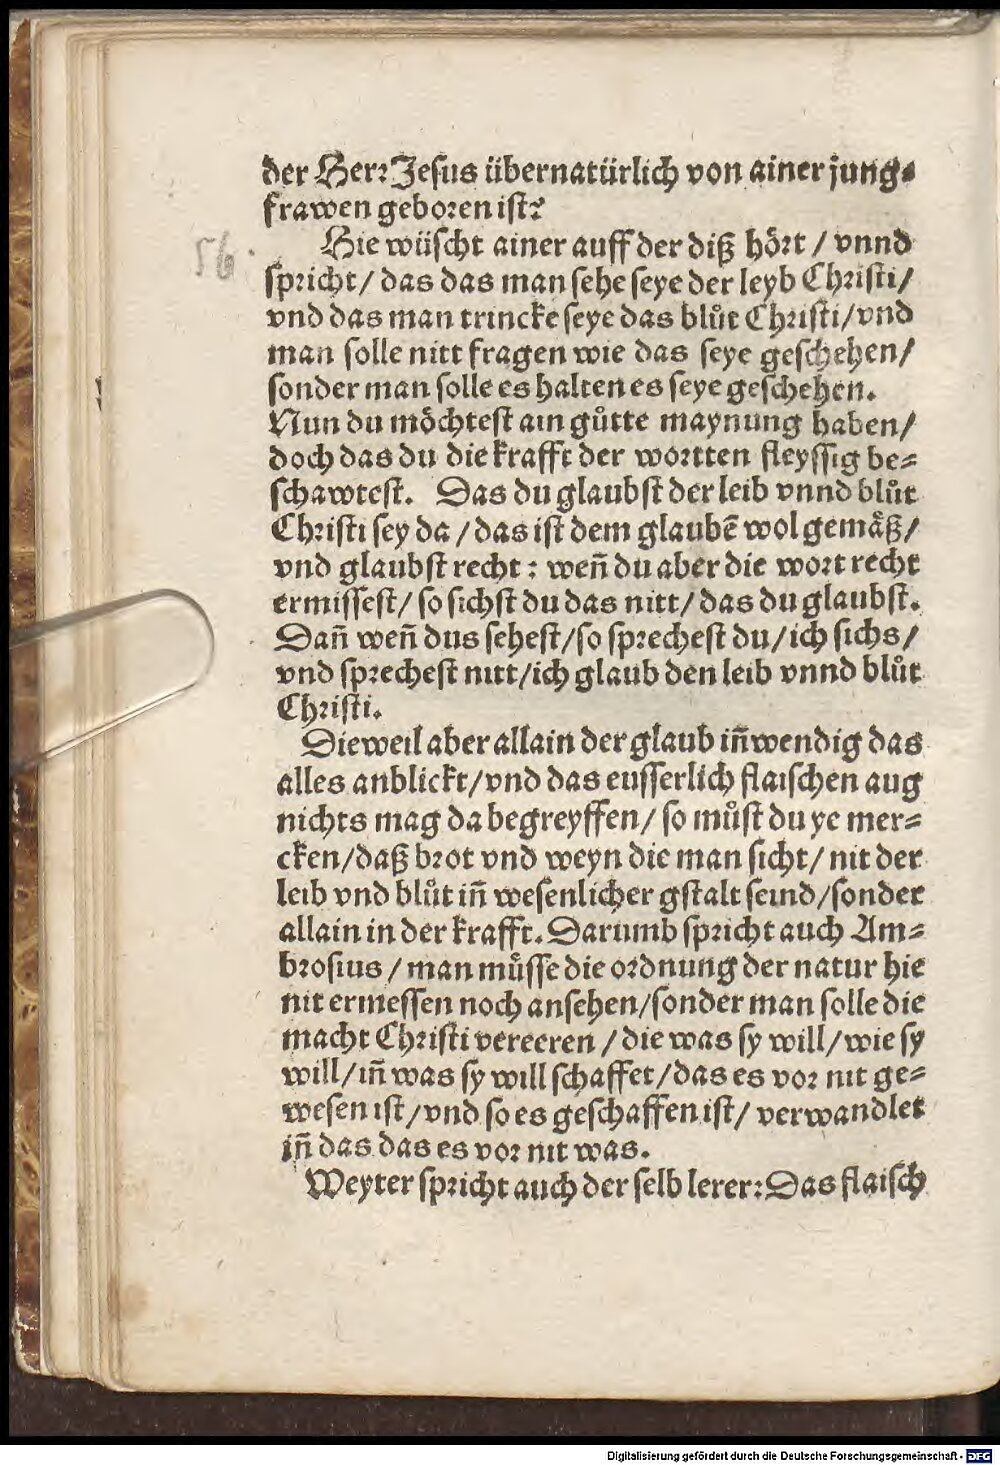 der Herr Jesus übernatürlich von ainer jung-
frawen geboren ist?
Hie wüscht ainer auff der diß hört / vnnd
56.
spricht / das das man sehe seye der leyb Christi /
vnd das man trincke seye das blůt Christi / vnd
man solle nitt fragen wie das seye geschehen /
sonder man solle es halten es seye geschehen.
Nun du möchtest ain gůtte maynung haben /
doch das du die krafft der wortten fleyssig be-
schawtest. Das du glaubst der leib vnnd blůt
Christi sey da / das ist dem glaubẽ wol gemäß /
vnd glaubst recht : weñ du aber die wort recht
ermissest / so sichst du das nitt / das du glaubst.
Dañ weñ dus sehest / so sprechest du / ich sichs /
vnd sprechest nitt / ich glaub den leib vnnd blůt
Christi.
Dieweil aber allain der glaub iñwendig das
alles anblickt / vnd das eusserlich flaischen aug
nichts mag da begreyffen / so můst du ye mer-
cken / daß brot vnd weyn die man sicht / nit der
leib vnd blůt iñ wesenlicher gstalt seind / sonder
allain in der krafft. Darumb spricht auch Am-
brosius / man müsse die ordnung der natur hie
nit ermessen noch ansehen / sonder man solle die
macht Christi vereeren / die was sy will / wie sy
will / iñ was sy will schaffet / das es vor nit ge-
wesen ist / vnd so es geschaffen ist / verwandlet
iñ das das es vor nit was.
Weyter spricht auch der selb lerer: Das flaisch
Digitalisierung gefördert durch die Deutsche Forschungsgemeinschaft - DFG